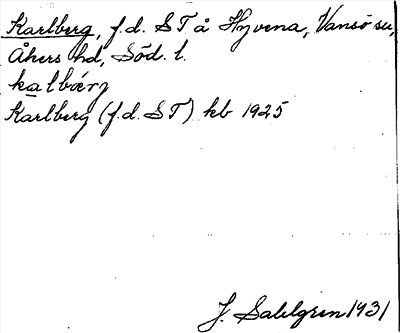 Karlberg, f.d. S T å Hyvena, Vansö sn,
Åkers hd, Söd. l.
kalbärj
Karlberg (f.d. S T) kb 1925
J. Sahlgren 1931